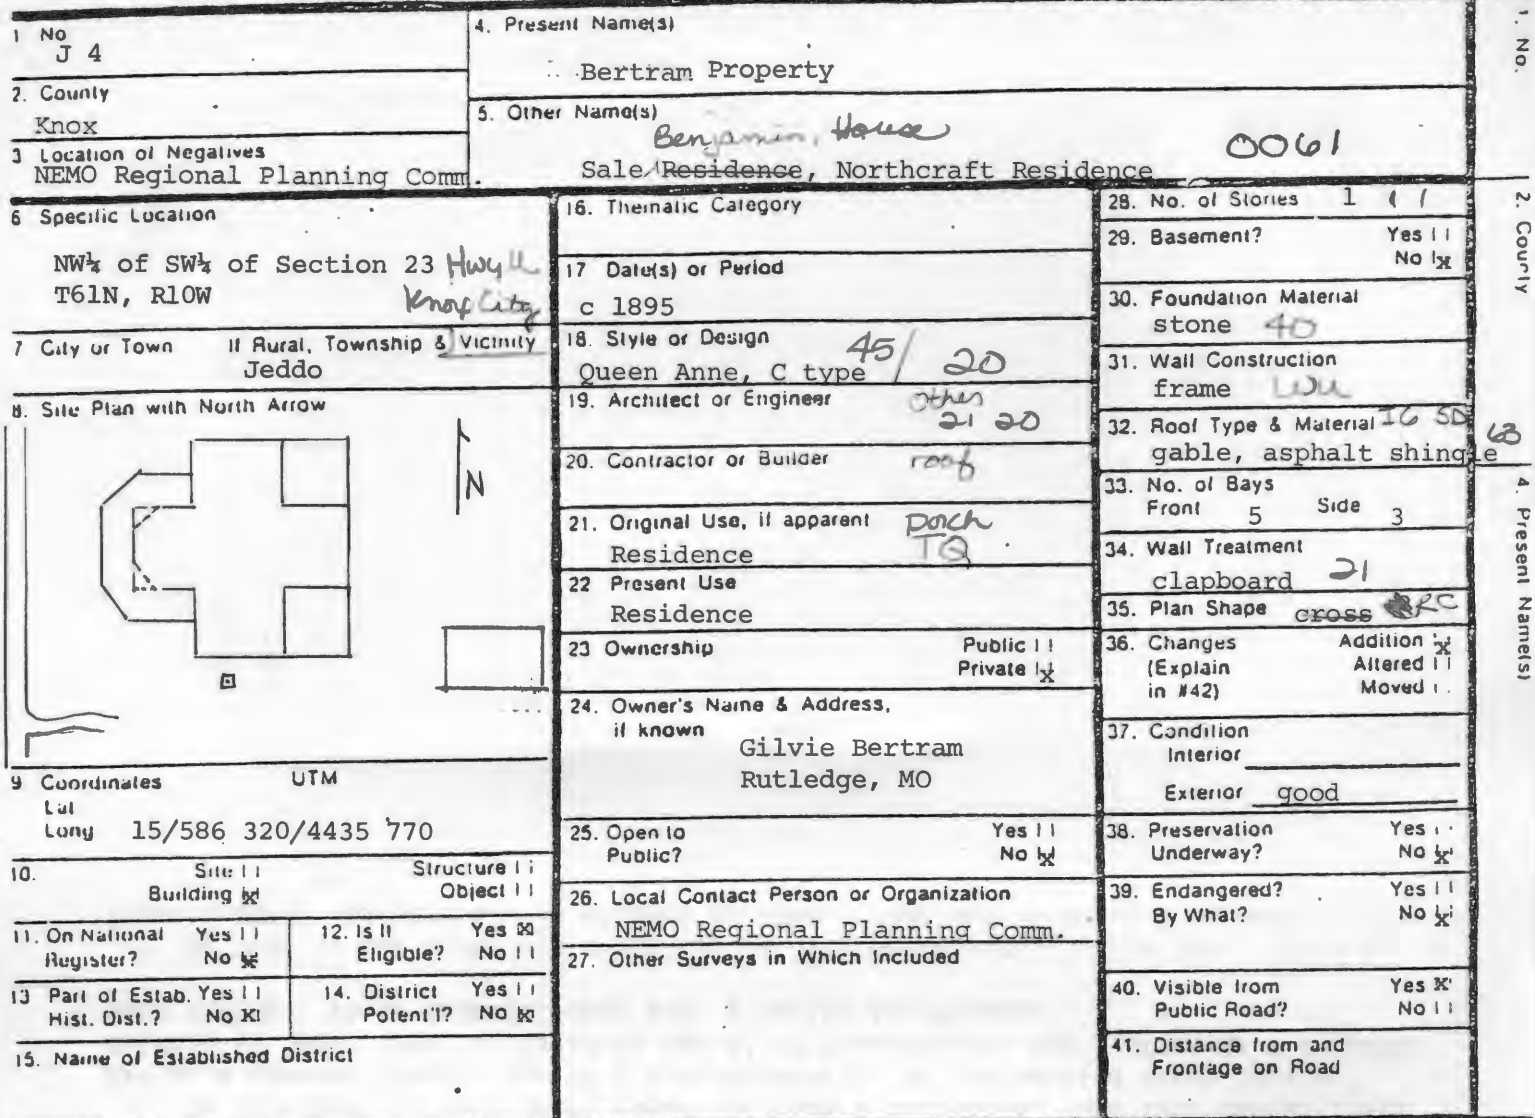 1 No
J 4
2. County
Knox
3 Location of Negatives
NEMO Regional Planning Comm.
4. Present Name(s)
Bertram Property
5. Other Name(s)
Benjamin, House
Sale Residence, Northcraft Residence
0061
6 Specific Location
NW¼ of SW¼ of Section 23 Hwy
T61N, R10W Knox City
7 City or Town If Rural, Township & Vicinity
Jeddo
8. Site Plan with North Arrow
N
9 Coordinates UTM
Lat
Long 15/586 320/4435 770
10. Site Structure
Building x Object
11. On National Yes
Register? No x
12. Is It Yes x
Eligible? No
13 Part of Estab. Yes
Hist. Dist.? No x
14. District Yes
Potent'l? No x
15. Name of Established District
16. Thematic Category
17 Date(s) or Period
c 1895
18. Style or Design 45/20
Queen Anne, C type
19. Architect or Engineer other
21 20
20. Contractor or Builder roof
21. Original Use, if apparent porch
Residence TQ
22 Present Use
Residence
23 Ownership Public
Private x
24. Owner's Name & Address,
if known
Gilvie Bertram
Rutledge, MO
25. Open to Yes
Public? No x
26. Local Contact Person or Organization
NEMO Regional Planning Comm.
27. Other Surveys in Which Included
28. No. of Stories 1
29. Basement? Yes
No x
30. Foundation Material
stone 40
31. Wall Construction
frame
32. Roof Type & Material
gable, asphalt shingle 63
33. No. of Bays
Front 5 Side 3
34. Wall Treatment
clapboard 21
35. Plan Shape cross RC
36. Changes Addition x
(Explain Altered
in #42) Moved
37. Condition
Interior
Exterior good
38. Preservation Yes
Underway? No x
39. Endangered? Yes
By What? No x
40. Visible from Yes x
Public Road? No
41. Distance from and
Frontage on Road
1. No.
2. County
4. Present Name(s)